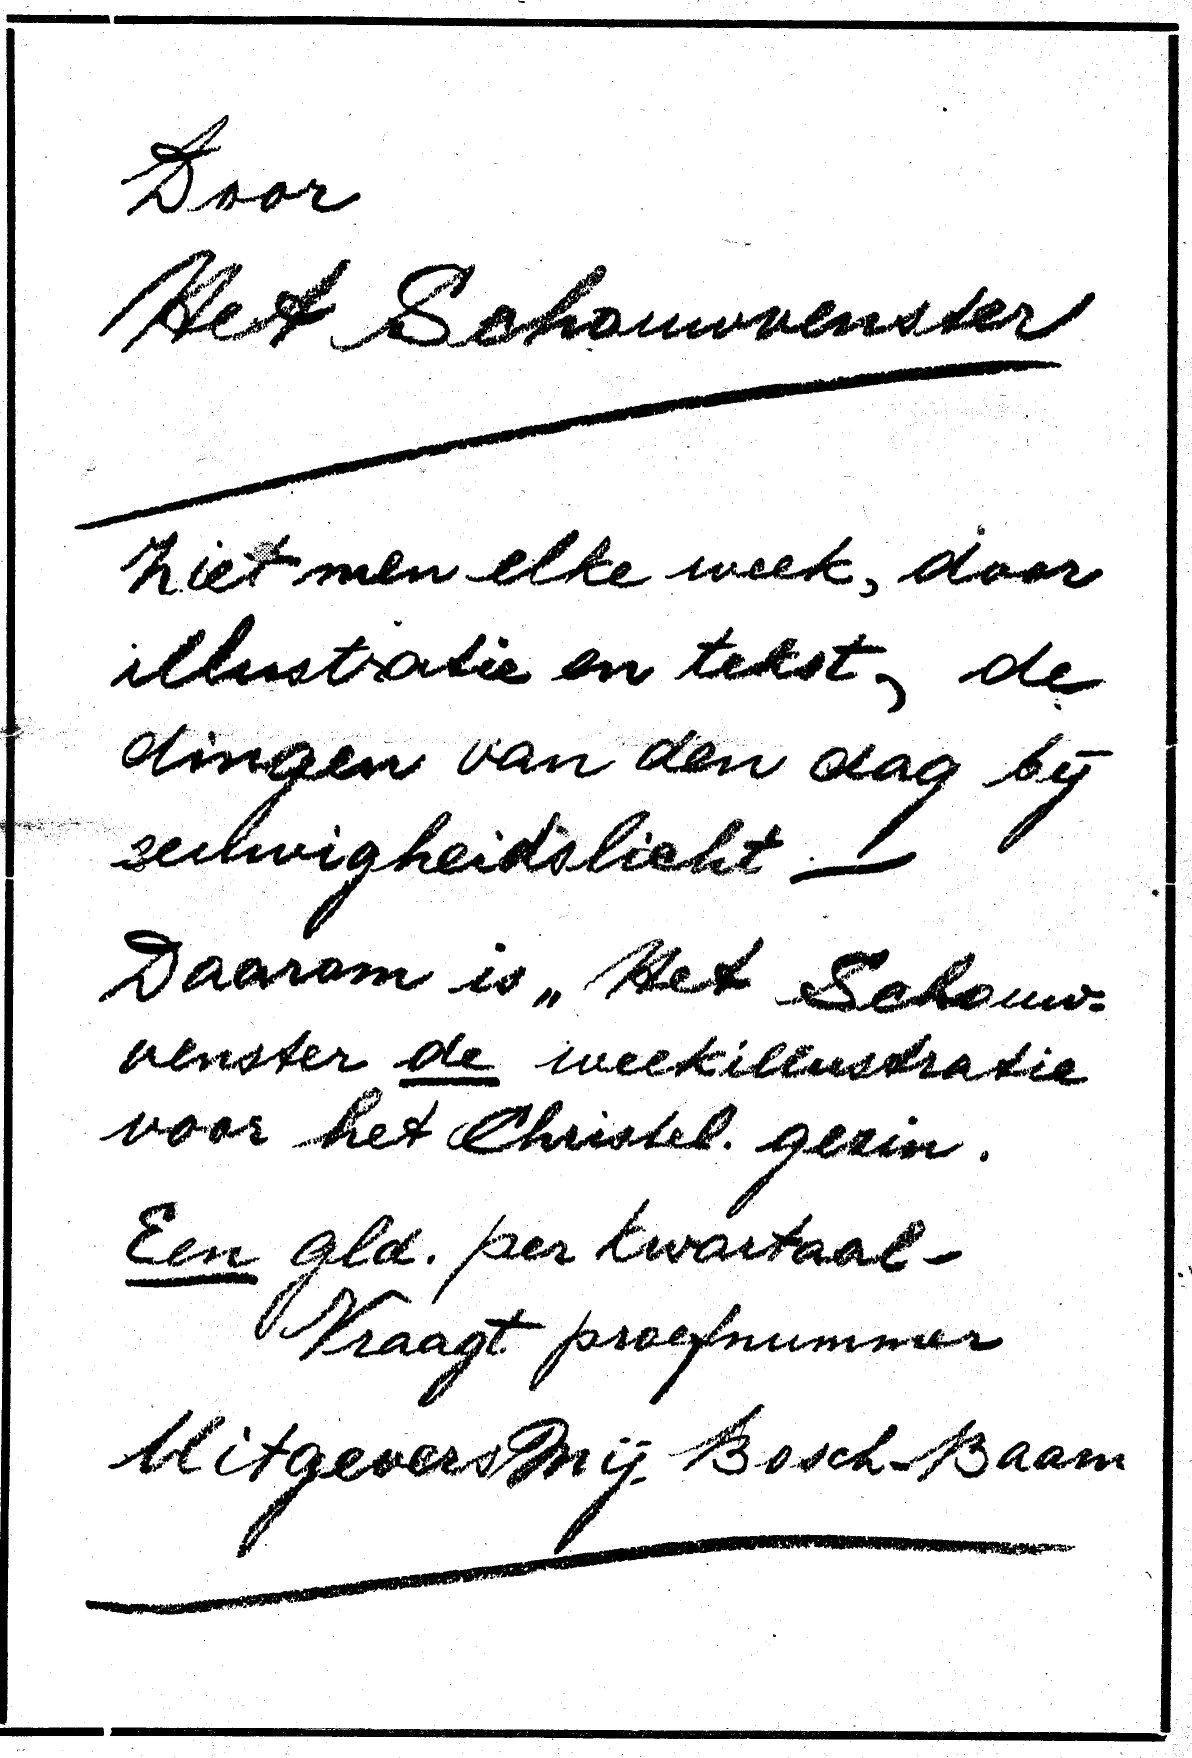 Door
Het Schouwvenster
Ziet men elke week, door
illustratie en tekst, de
dingen van den dag bij
eeuwigheidslicht —
Daarom is „Het Schouw-
venster de weekillustratie
voor het Christel. gezin.
Een gld. per kwartaal -
Vraagt proefnummer
UitgeversMij. Bosch-Baarn